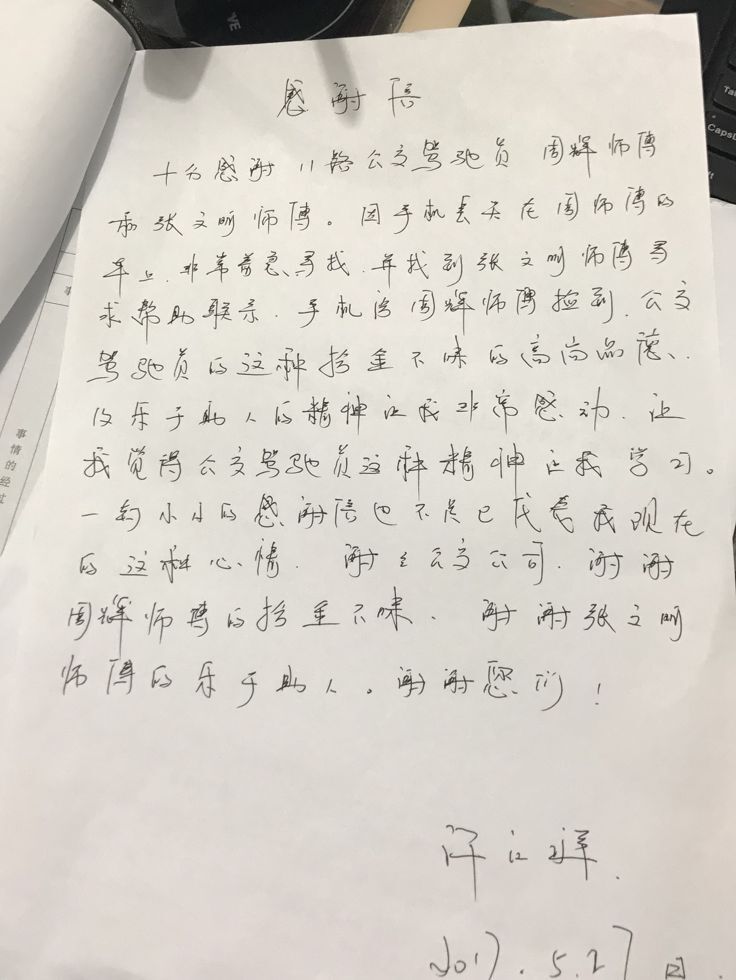 感谢信
十分感谢 11路公交驾驶员 周辉师傅
和张文明师傅。因手机丢失在周师傅的
车上.非常着急寻找.并找到张文明师傅寻
求帮助联系.手机让周辉师傅捡到.公交
驾驶员的这种拾金不昧的高尚品德.
及乐于助人的精神让我非常感动.让
我觉得公交驾驶员这种精神让我学习。
一封小小的感谢信也不足已代表我现在
的这种心情.谢谢公交公司.谢谢
周辉师傅的拾金不昧.谢谢张文明
师傅的乐于助人。谢谢您们!
江祥.
2017.5.27日.
VE
CapsL
事情的经过